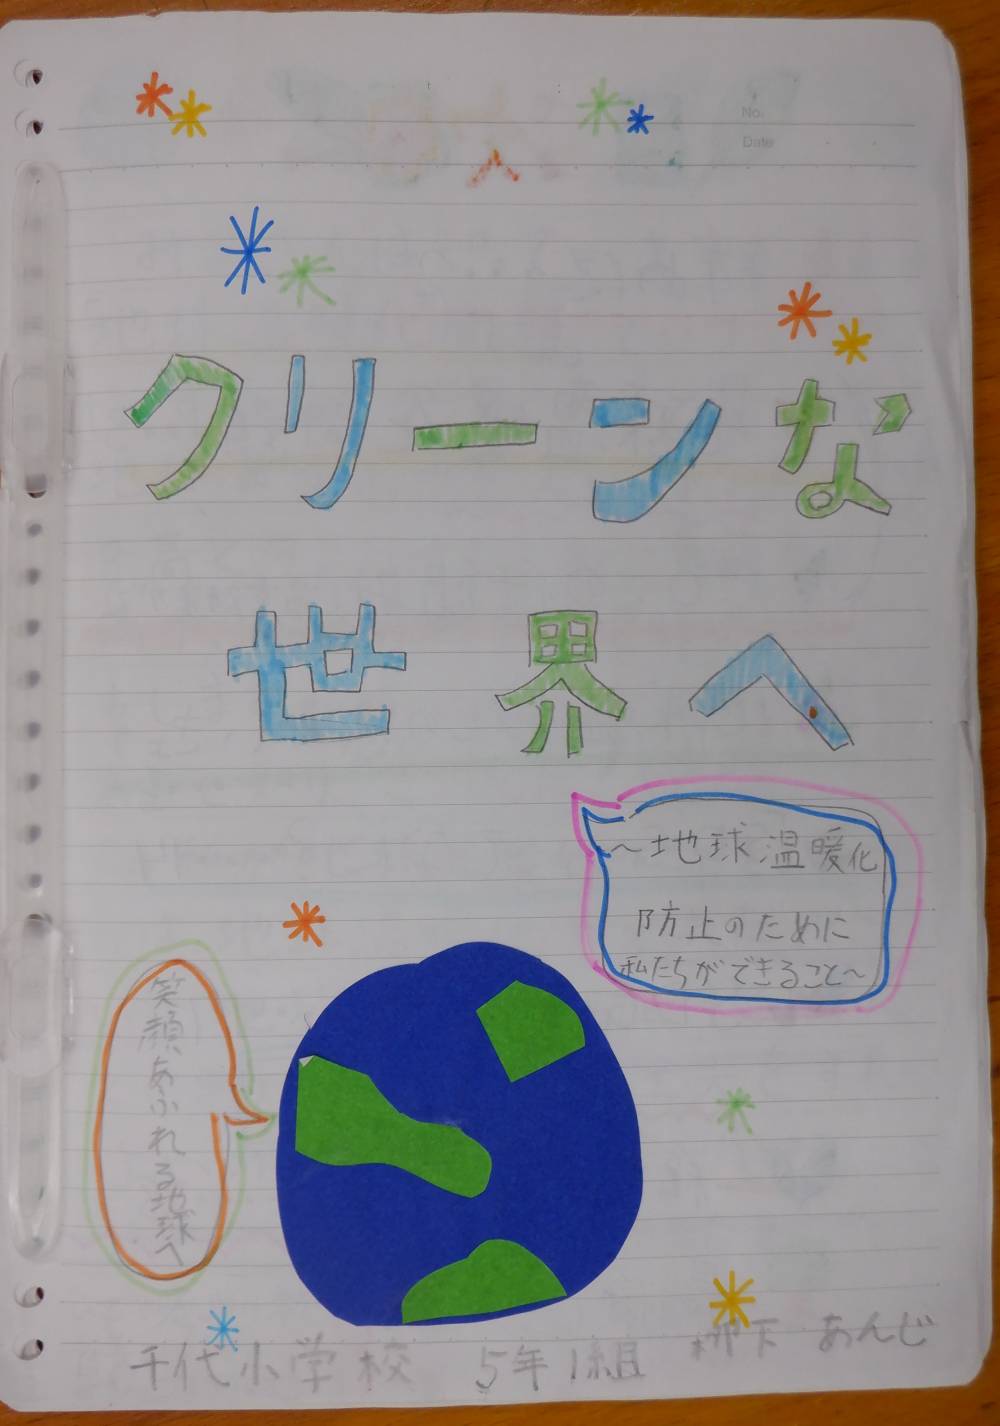 No.
Date
クリーンな
世界へ
～地球温暖化
防止のために
私たちができること～
笑顔あふれる地球へ
千代小学校 5年1組 柳下 あんじ